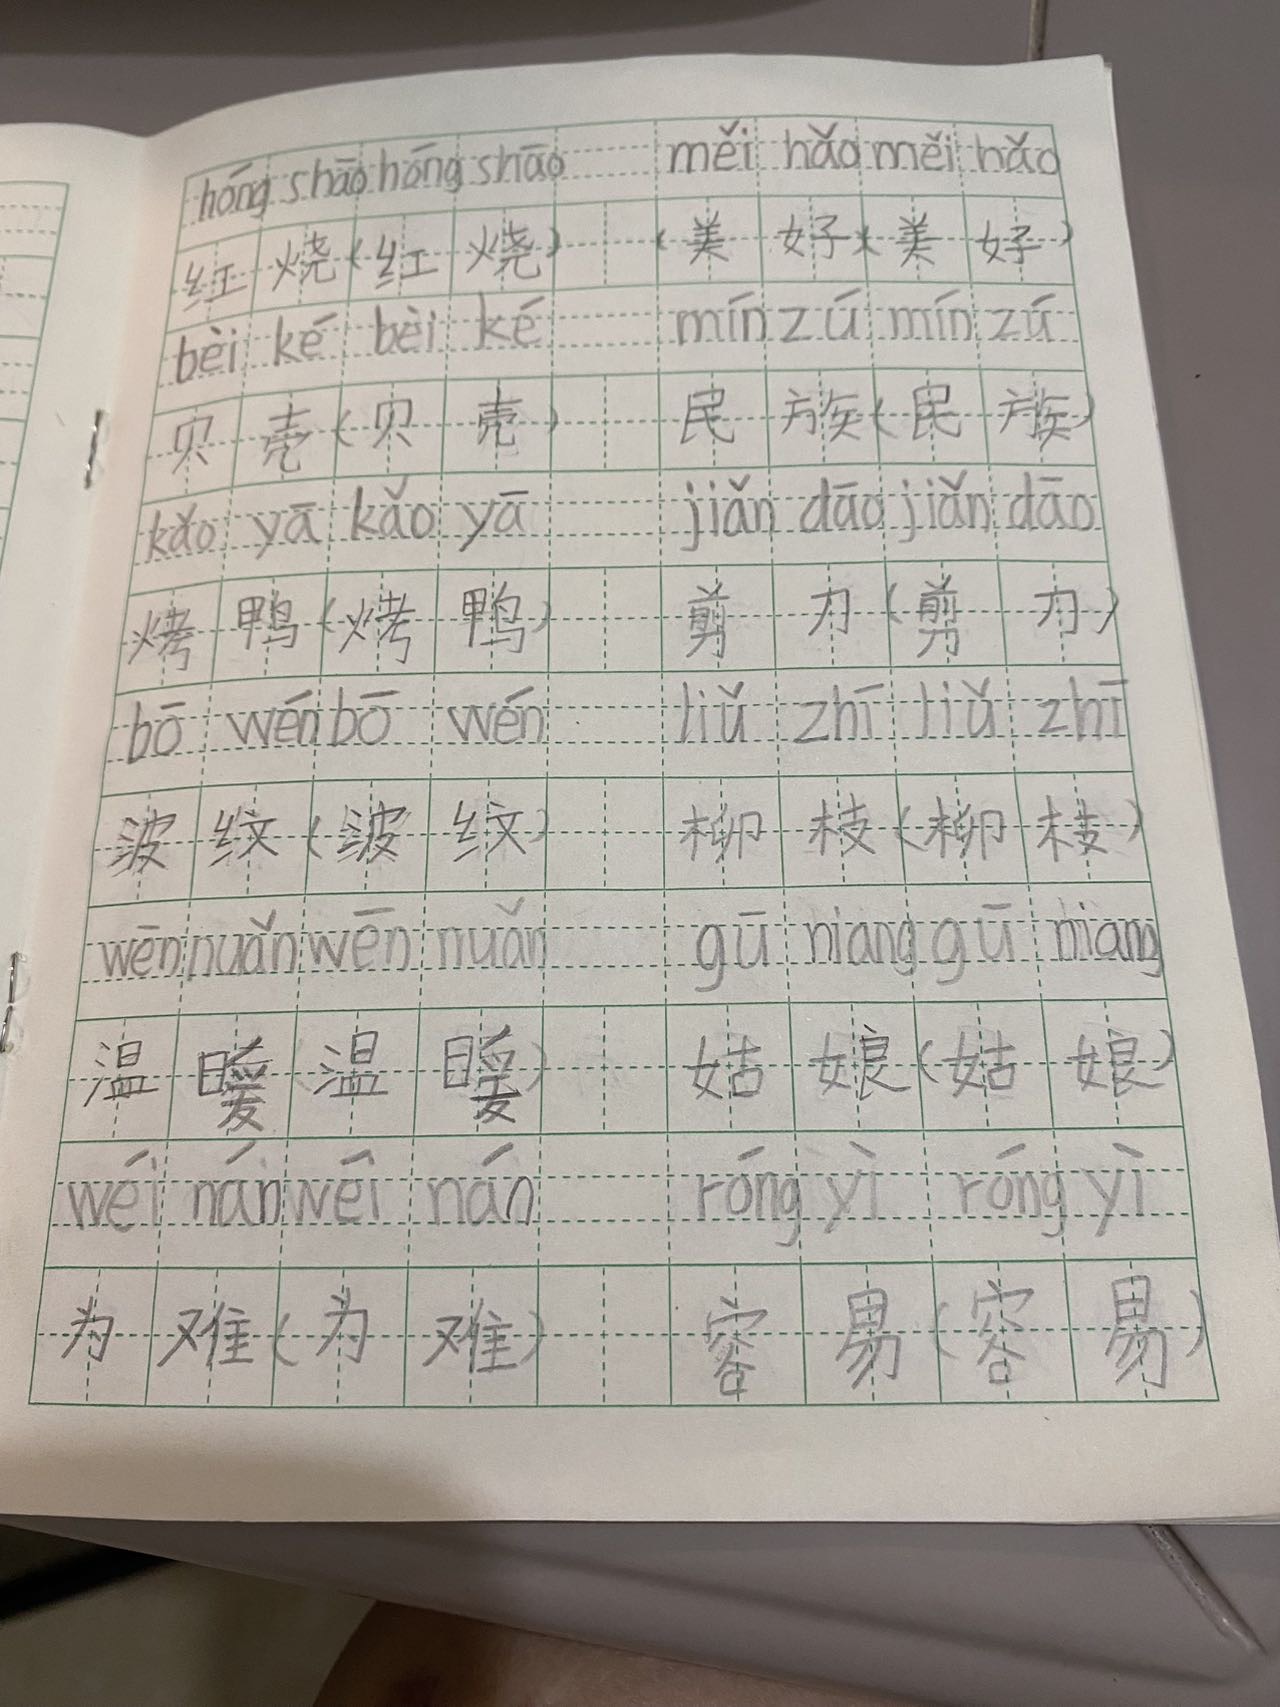 hóng shāo hóng shāo měi hǎo měi hǎo
红烧(红烧) (美好(美好)
bèi ké bèi ké mín zú mín zú
贝壳(贝壳) 民族(民族)
kǎo yā kǎo yā jiǎn dāo jiǎn dāo
烤鸭(烤鸭) 剪刀(剪刀)
bō wén bō wén liǔ zhī liǔ zhī
波纹(波纹) 柳枝(柳枝)
wēn nuǎn wēn nuǎn gū niang gū niang
温暖(温暖) 姑娘(姑娘)
wéi nán wéi nán róng yì róng yì
为难(为难) 容易(容易)